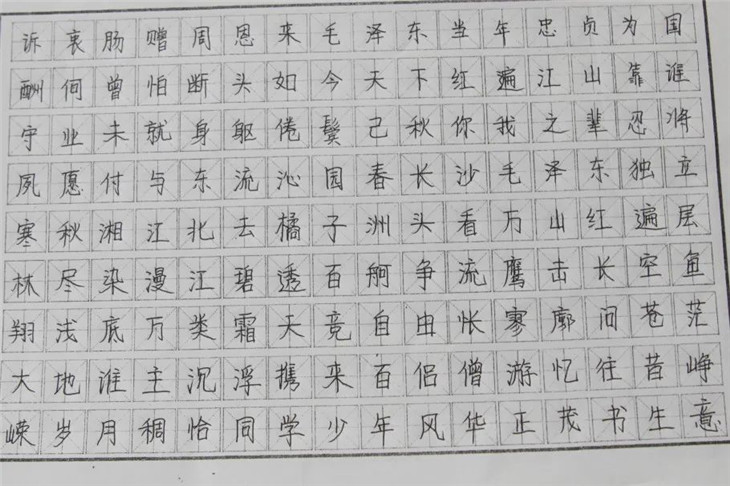 诉衷肠赠周恩来毛泽东当年忠贞为国
酬何曾怕断头如今天下红遍江山靠谁
守业未就身躯倦鬓己秋你我之辈忍将
夙愿付与东流沁园春长沙毛泽东独立
寒秋湘江北去橘子洲头看万山红遍层
林尽染漫江碧透百舸争流鹰击长空鱼
翔浅底万类霜天竞自由怅寥廓问苍茫
大地谁主沉浮携来百侣僧游忆往昔峥
嵘岁月稠恰同学少年风华正茂书生意